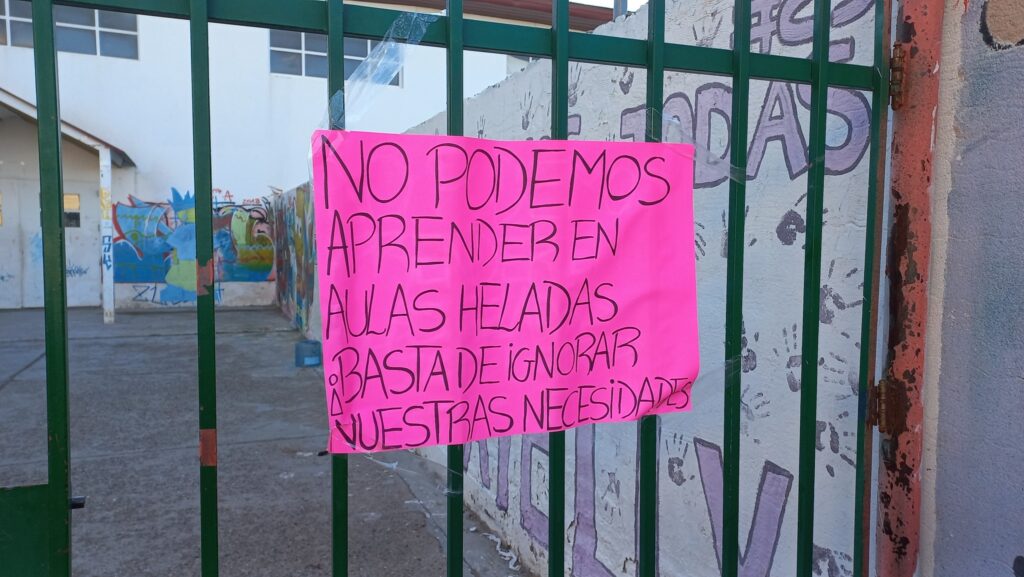 TODAS
NO PODEMOS
APRENDER EN
AULAS HELADAS
¡BASTA DE iGNORAR
NUESTRAS NECESiDADES